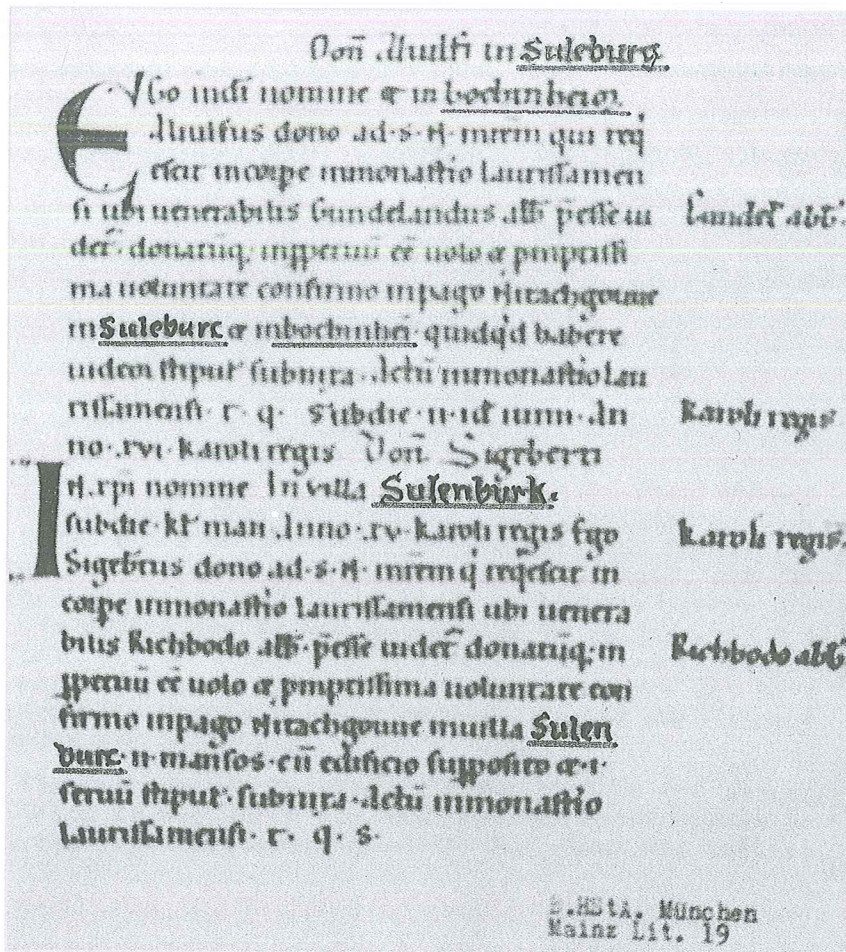 Don̄ Miulfi in Suleburg.
EGo indī nomine & in bochinheim.
Miulfus dono ad·s·N·mr̄em qui req
escit incorpe inmonast̄io laurissamen
si ubi uenerabilis Gundelandus abb̄ p̄esse ui Gundel̄ abb̄.
det̄·donatūq, inpp̄etuū ēē uolo & p̄mptissi
ma uoluntate confirmo inpago Nitachgouue
in Suleburc & in bochinhei·quidq'd habere
uideor st̄iput̄ subnixa·Actū inmonast̄io lau
rissamensi·r·q·Subdie·ii·id̄ iunii·An Karoli regis
no·xvi·karoli regis Don̄ Sigeberti
IN.xp̄i nomine In villa Sulenburk.
subdie·kl̄ maii Anno·xv·karoli regis Ego Karoli regis.
Sigebt̄us dono ad·s·N·mr̄em q' req̄escit in
corpe inmonast̄io laurissamensi ubi uenera
bilis Richbodo abb̄·p̄esse uidet̄ donatūq; in Richbodo abb̄
pp̄etuū ēē uolo & p̄mptissima uoluntate con
firmo inpago Nitachgouue inuilla Sulen
burc·ii·mansos·cū edificio supposito &·i·
seruū st̄iput̄·subnixa·Actū inmonast̄io
laurissamensi·r·q·s·
B.HStA. München
Mainz Lit. 19